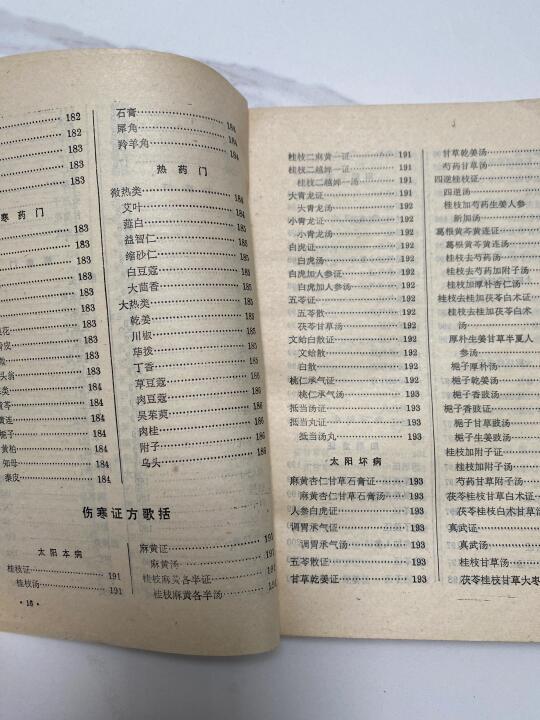 182
182
183
183
寒药门
183
183
183
183
183
183
183
183
184
184
184
184
知母 184
秦皮 184
石膏
犀角 184
羚羊角 184
热药门
微热类 184
艾叶 184
薤白 184
益智仁 185
缩砂仁 185
白豆蔻 185
大茴香 185
大热类 185
乾姜 185
川椒 185
荜拨 185
丁香 186
草豆蔻 186
肉豆蔻 186
吴茱萸 186
肉桂 186
附子 186
乌头 186
伤寒证方歌括
太阳本病
桂枝证 191
桂枝汤 191
麻黄证 191
麻黄汤 191
桂枝麻黄各半证 191
桂枝麻黄各半汤 191
·16·
桂枝二麻黄一证 191
桂枝二越婢一证 191
桂枝二越婢一汤 191
大青龙证 192
大青龙汤 192
小青龙证 192
小青龙汤 192
白虎证 192
白虎汤 192
白虎加人参证 192
白虎加人参汤 192
五苓证 192
五苓散 192
茯苓甘草汤 192
文蛤白散证 192
文蛤散 192
白散 192
桃仁承气证 192
桃仁承气汤 193
抵当汤证 193
抵当丸证 193
抵当汤丸 193
太阳坏病
麻黄杏仁甘草石膏证 193
麻黄杏仁甘草石膏汤 193
人参白虎证 193
调胃承气证 193
调胃承气汤 193
五苓散证 193
甘草乾姜证 193
甘草乾姜汤
芍药甘草汤
四逆桂枝证
四逆汤
桂枝加芍药生姜人参
新加汤
葛根黄芩黄连证
葛根黄芩黄连汤
桂枝去芍药证
桂枝去芍药加附子汤
桂枝加厚朴杏仁汤
桂枝去桂加茯苓白术证
桂枝去桂加茯苓白术
汤
厚朴生姜甘草半夏人
参汤
栀子厚朴汤
栀子乾姜汤
栀子香豉汤
栀子香豉证
栀子甘草豉汤
栀子生姜豉汤
桂枝加附子证
桂枝加附子汤
芍药甘草附子汤
茯苓桂枝甘草白术证
茯苓桂枝白术甘草
真武证
真武汤
桂枝甘草汤
茯苓桂枝甘草大枣